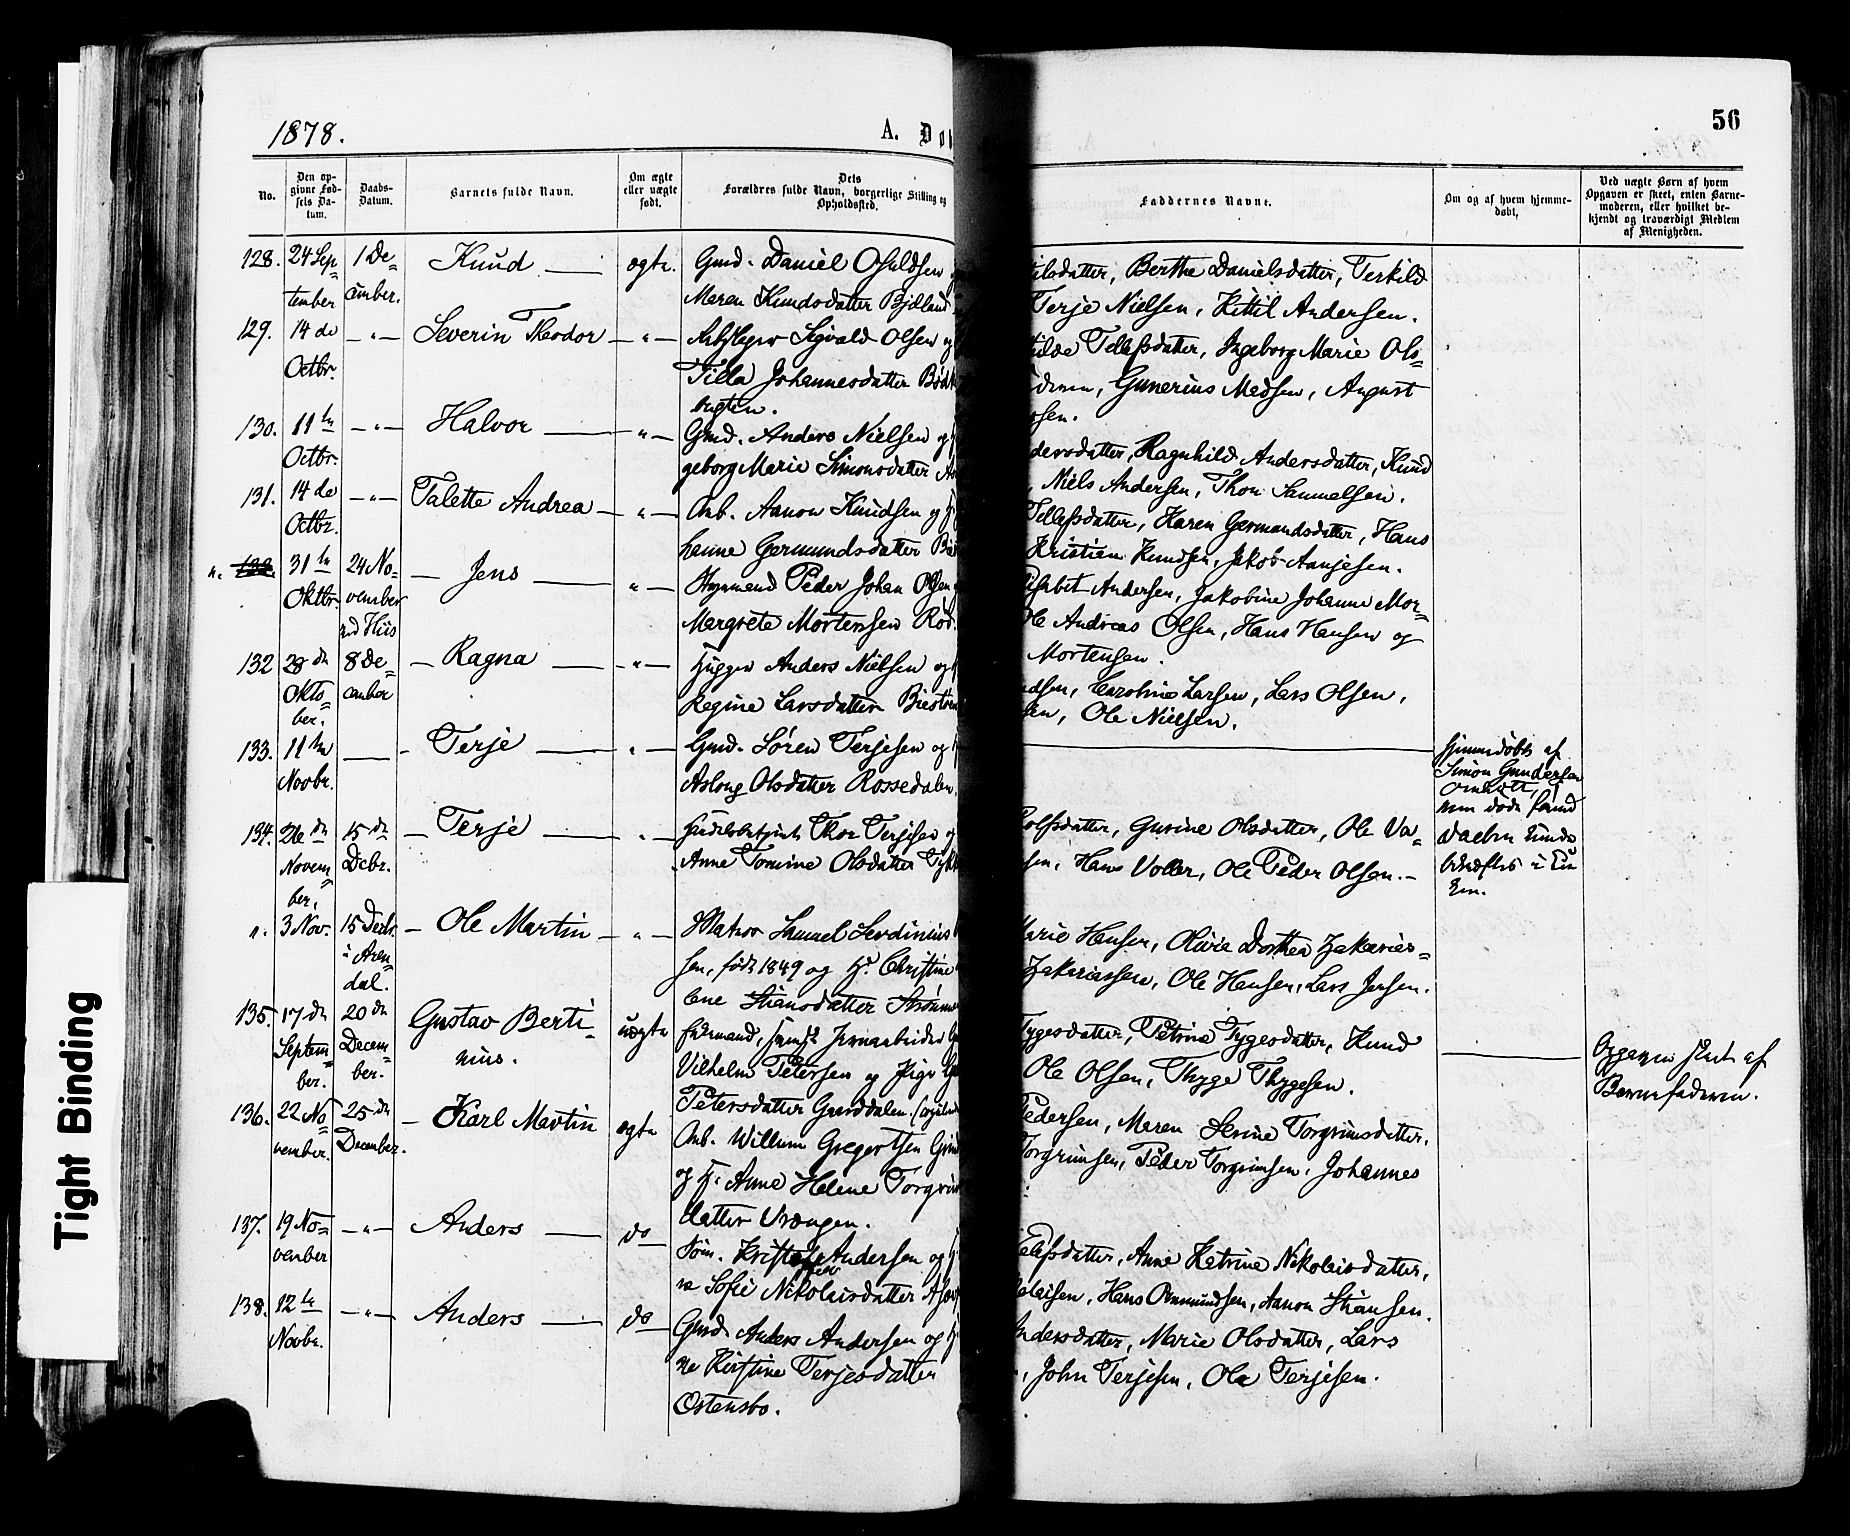 1878.
A. Do
56
No.
Den op-
givne Fød-
sels Da-
tum.
Daabs-
Datum.
Barnets fulde Navn.
Om ægte
eller uægte
født.
Dets
Forældres fulde Navn, borgerlige Stilling og
Opholdssted.
Faddernes Navne.
Om og af hvem hjemme-
døbt.
Ved uægte Børn af hvem
Opgaven er skeet, enten Barne-
moderen, eller hvilket be-
kjendt og troværdigt Medlem
af Menigheden.
128. 24 Sep-
tember
1 De-
cember.
Knud
ægte.
Gmd. Daniel Osuldsen
Maren Knudsdatter Bjelland
ilsdatter, Berthe Danielsdatter, Terkild
Terje Nielsen, Kittil Andersen.
129. 14 de
Octbr.
- " -
Severin Theodor
- " -
Sigvald Olsen og
Tilla Johannesdatter
bugten.
Tellefsdatter, Ingeborg Marie Ols-
Gunerius Madsen, August
sen.
130. 11 te
Octbr.
- " -
Halvor
" -
Gmd. Anders Nielsen og
geborg Marie Simonsdatter
dersdatter, Ragnhild Andersdatter, Knud
, Niels Andersen, Thor Samuelsen.
131. 14 de
Octbr.
- " -
Talette Andrea
- " -
Arb. Aanon Knudsen og
hanne Germundsdatter
Tellefsdatter, Karen Germundsdatter, Hans
Kristian Knudsen, Jakob Aanjesen.
". 132.
31 te
Oktbr.
24 No-
vember
ved Hiis
Jens
" -
Peder Johan Olsen
Margrete Mortensen
Andersen, Jakobine Johanne Mor-
Ole Andreas Olsen, Hans Hansen og
Mortensen.
132 28 de
Okto-
ber.
8 De-
cember
Ragna
- " -
Anders Nielsen og
Regine Larsdatter
dsen, Caroline Larsen, Lars Olsen,
sen, Ole Nielsen.
133. 11 te
Novbr.
Terje
" -
Gmd. Søren Terjesen og
Aslaug Olsdatter Rossedalen.
Hjemmedøbt af
Simon Gundersen
134. 26 de
Novem-
ber.
15 de
Decbr.
Terje
"
Thor Terjesen og
Anne Tomine Olsdatter
olfsdatter, Gurine Olsdatter, Ole
sen, Hans Voller, Ole Peder Olsen.
". 3 Nov.
15 Decbr.
i Aren-
dal.
Ole Martin
- " -
Matros Samuel Serdinius
sen, født 1849 og H. Christine
lene Stiansdatter
Marie Hansen, Olivie Dorthea Zakarias-
Zakariassen, Ole Hansen, Lars Jensen.
135. 17 de
Septem-
ber.
20 de
Decem-
ber.
Gustav Berti-
nius.
uægte
Jernarbeider
Vilhelm Petersen og Pige
Petersdatter
Tygesdatter, Petrine Tygesdatter, Knud
Ole Olsen, Thyge Thygesen.
Opgaven skeet af
Barnefaderen.
136. 22 No-
vember.
25 de
December.
Karl Martin
ægte
Arb. Willum Gregertsen
og H. Anne Helene Torgrim
datter Vrængen.
Pedersen, Maren Serine Torgrimsdatter,
Torgrimsen, Peder Torgrimsen, Johannes
137. 19 No-
vember
- " -
Anders
do
Tøm. Andersen og H.
ne Sofie Nikolaisdatter
Tellefsdatter, Anne Katrine Nikolaisdatter,
olaisen, Hans Aanundsen, Aanon Stiansen.
138. 12 te
Novbr.
- " -
Anders
do
Gmd. Anders Andersen og H.
ne Kirstine Terjesdatter
Østensbo.
Andersdatter, Marie Olsdatter, Lars
, John Terjesen, Ole Terjesen.
Tight Binding